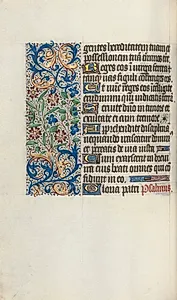 gentes hereditatem tuam et
possessionem tuam
Reges eos in virga ferrea
tanquam vas figuli confringes eos
Et nunc reges intelligite
erudimini qui iudicatis terram
Servite domino in timore et
exultate ei cum tremore
Apprehendite disciplinam
nequando irascatur dominus
et pereatis de via iusta
Cum exarserit in brevi
ira eius beati omnes qui con
fidunt in eo
Gloria patri Psalmus